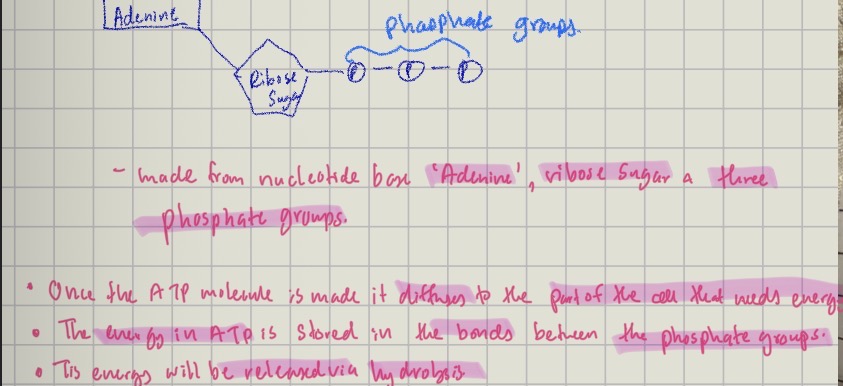 Adenine
phosphate groups.
Ribose
Sugar
P — P — P
- made from nucleotide base 'Adenine', ribose sugar & three
phosphate groups.
• Once the ATP molecule is made it diffuses to the part of the cell that needs energ
• The energy in ATP is stored in the bonds between the phosphate groups.
• Tis energy will be released via hydrolsis